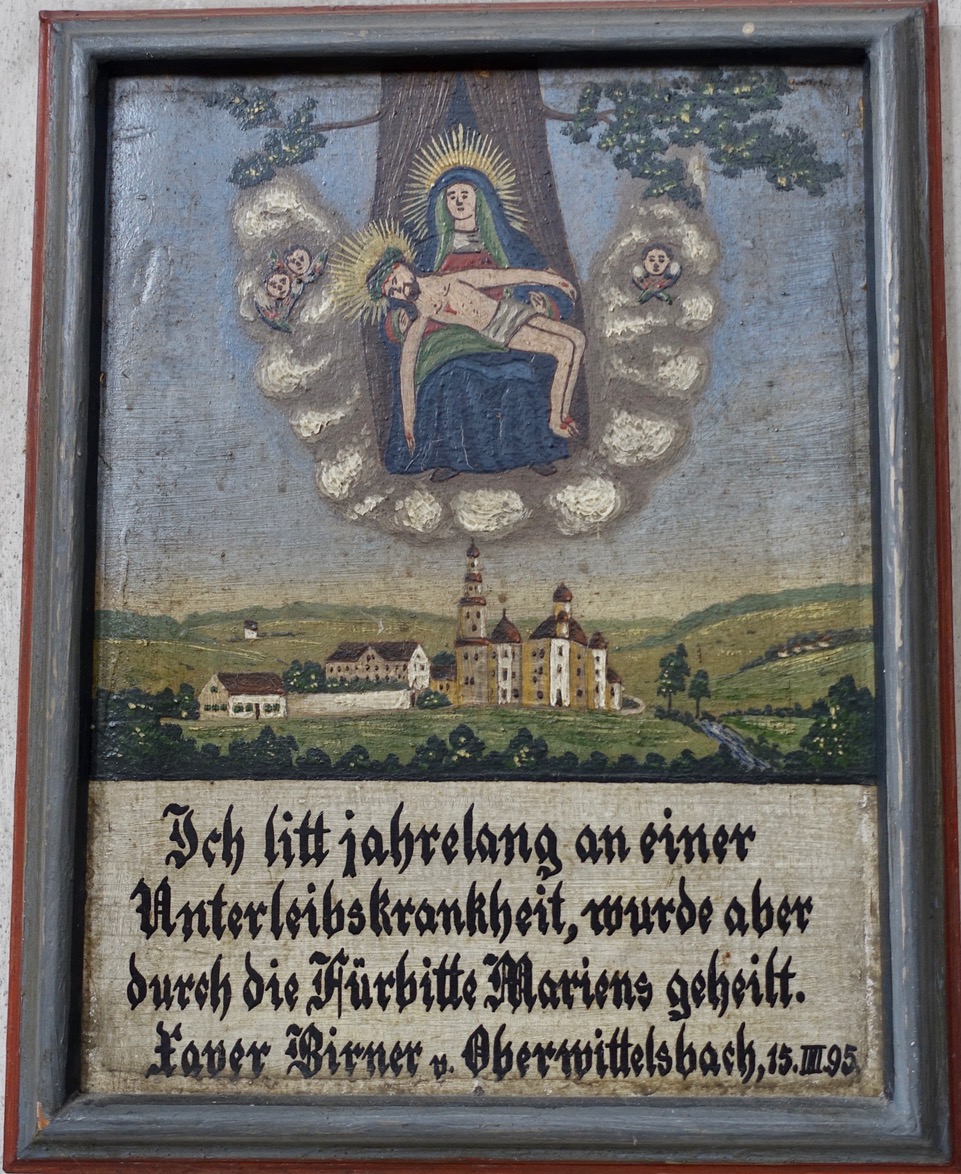 Ich litt jahrelang an einer
Unterleibskrankheit, wurde aber
durch die Fürbitte Mariens geheilt.
Xaver Birner v. Oberwittelsbach, 15.III.95.